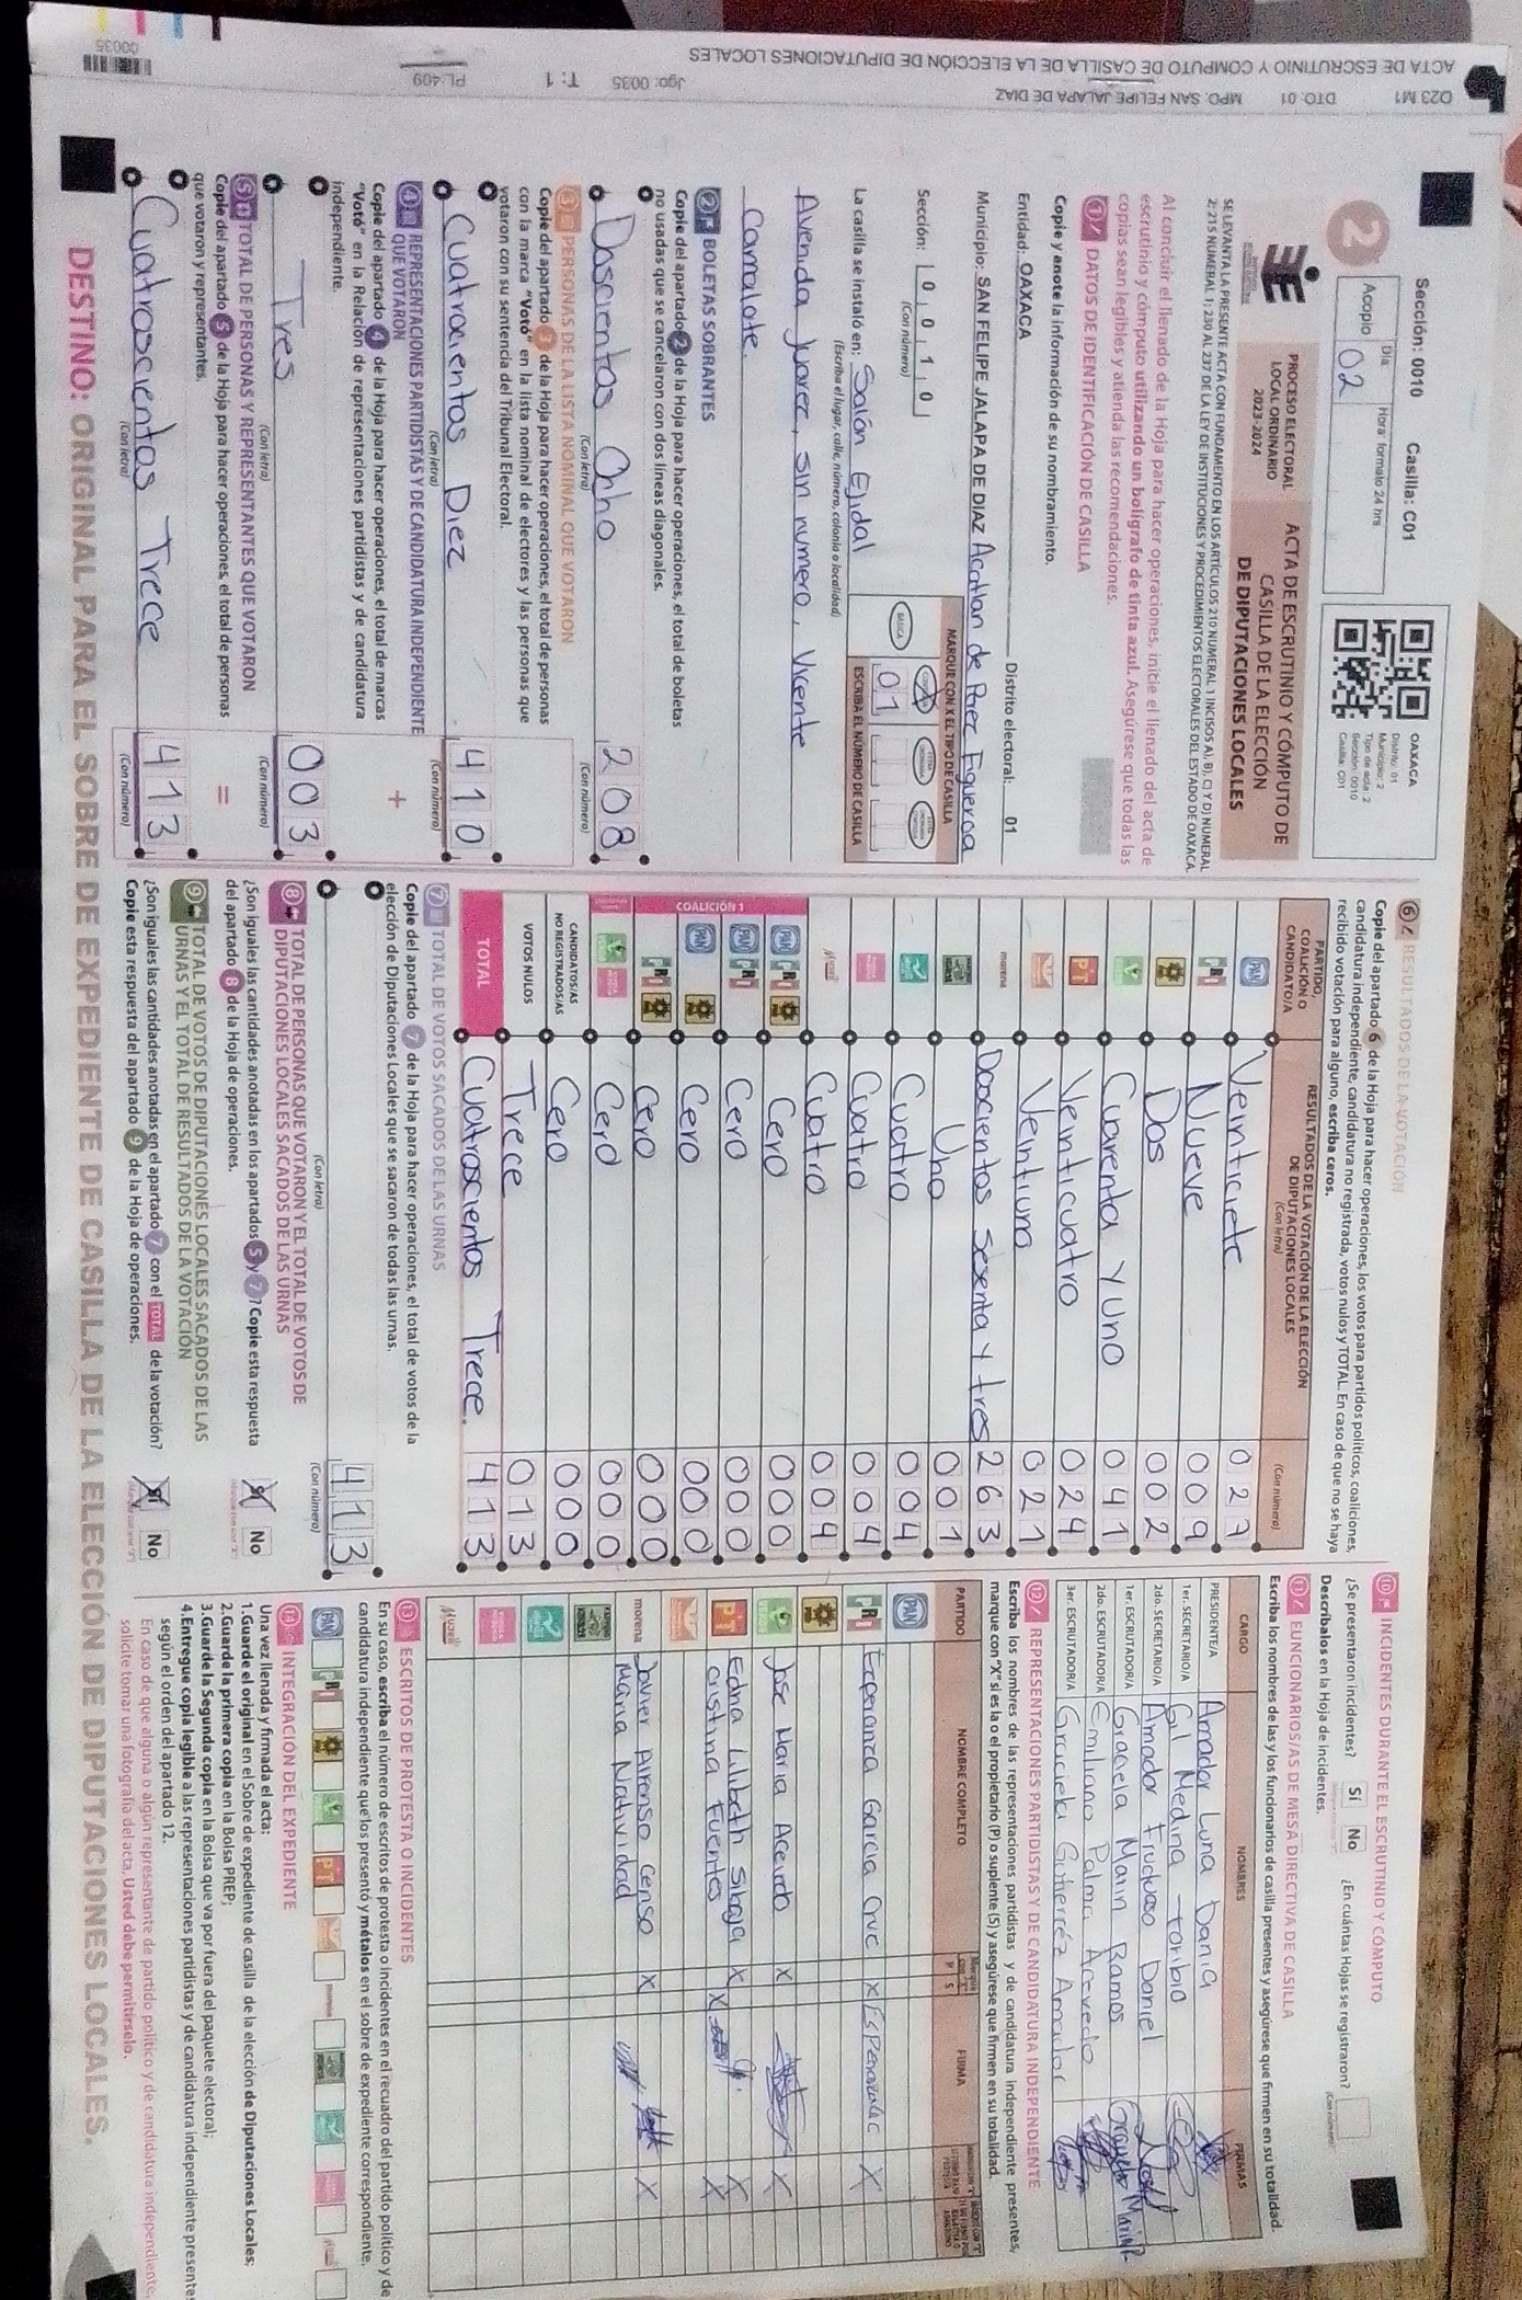 023 M1 DTO: 01 MPO. SAN FELIPE JALAPA DE DIAZ
ACTA DE ESCRUTINIO Y COMPUTO DE CASILLA DE LA ELECCIÓN DE DIPUTACIONES LOCALES
Jgo: 0035 T: 1 PL:409
00035
Sección: 0010 Casilla: C01
2
Acopio
Día
Hora formato 24 hrs
02
OAXACA
Distrito: 01
Municipio: 2
Tipo de acta: 2
Sección: 0010
Casilla: C01
PROCESO ELECTORAL
LOCAL ORDINARIO
2023-2024
ACTA DE ESCRUTINIO Y CÓMPUTO DE
CASILLA DE LA ELECCIÓN
DE DIPUTACIONES LOCALES
SE LEVANTA LA PRESENTE ACTA CON FUNDAMENTO EN LOS ARTÍCULOS 210 NUMERAL 1 INCISOS A), B), C) Y D) NUMERAL
2; 215 NUMERAL 1; 230 AL 237 DE LA LEY DE INSTITUCIONES Y PROCEDIMIENTOS ELECTORALES DEL ESTADO DE OAXACA.
Al concluir el llenado de la Hoja para hacer operaciones, inicie el llenado del acta de
escrutinio y cómputo utilizando un bolígrafo de tinta azul. Asegúrese que todas las
copias sean legibles y atienda las recomendaciones.
1 DATOS DE IDENTIFICACIÓN DE CASILLA
Copie y anote la información de su nombramiento.
Entidad: OAXACA Distrito electoral: 01
Municipio: SAN FELIPE JALAPA DE DIAZ Acatlan de Perez Figueroa
Sección: 0 0 1 0
(Con número)
MARQUE CON X EL TIPO DE CASILLA
BÁSICA
01
ESCRIBA EL NÚMERO DE CASILLA
La casilla se instaló en: Salón Ejidal
(Escriba el lugar, calle, número, colonia o localidad)
Avenida Juarez, sin numero, Vicente
Camalote.
2 BOLETAS SOBRANTES
Copie del apartado 2 de la Hoja para hacer operaciones, el total de boletas
no usadas que se cancelaron con dos líneas diagonales.
Doscientos Ocho 208
(Con letra) (Con número)
3 PERSONAS DE LA LISTA NOMINAL QUE VOTARON
Copie del apartado 3 de la Hoja para hacer operaciones, el total de personas
con la marca "Votó" en la lista nominal de electores y las personas que
votaron con su sentencia del Tribunal Electoral.
Cuatrocientos Diez 410
(Con letra) (Con número)
4 REPRESENTACIONES PARTIDISTAS Y DE CANDIDATURA INDEPENDIENTE
QUE VOTARON
+
Copie del apartado 4 de la Hoja para hacer operaciones, el total de marcas
"Votó" en la Relación de representaciones partidistas y de candidatura
independiente.
Tres 003
(Con letra) (Con número)
5 TOTAL DE PERSONAS Y REPRESENTANTES QUE VOTARON
=
Copie del apartado 5 de la Hoja para hacer operaciones, el total de personas
que votaron y representantes.
Cuatroscientos Trece 413
(Con letra) (Con número)
6 RESULTADOS DE LA VOTACIÓN
Copie del apartado 6 de la Hoja para hacer operaciones, los votos para partidos políticos, coaliciones,
candidatura independiente, candidatura no registrada, votos nulos y TOTAL. En caso de que no se haya
recibido votación para alguno, escriba ceros.
PARTIDO, COALICIÓN O CANDIDATO/A
RESULTADOS DE LA VOTACIÓN DE LA ELECCIÓN
DE DIPUTACIONES LOCALES
(Con letra) (Con número)
PAN Veinticiete 027
PRI Nueve 009
PRD Dos 002
VERDE Cuarenta y Uno 041
PT Veinticuatro 024
Veintiuno 021
morena Doscientos Sesenta y tres 263
Uno 001
Cuatro 004
Cuatro 004
MUJER Cuatro 004
COALICIÓN 1
PAN PRI PRD Cero 000
PAN PRI Cero 000
PAN PRD Cero 000
PRI PRD Cero 000
VERDE Cero 000
CANDIDATOS/AS
NO REGISTRADOS/AS Cero 000
VOTOS NULOS Trece 013
TOTAL Cuatroscientos Trece. 413
7 TOTAL DE VOTOS SACADOS DE LAS URNAS
Copie del apartado 7 de la Hoja para hacer operaciones, el total de votos de la
elección de Diputaciones Locales que se sacaron de todas las urnas.
413
(Con letra) (Con número)
8 TOTAL DE PERSONAS QUE VOTARON Y EL TOTAL DE VOTOS DE
DIPUTACIONES LOCALES SACADOS DE LAS URNAS
¿Son iguales las cantidades anotadas en los apartados 5 y 7? Copie esta respuesta
del apartado 8 de la Hoja de operaciones.
Sí No
9 TOTAL DE VOTOS DE DIPUTACIONES LOCALES SACADOS DE LAS
URNAS Y EL TOTAL DE RESULTADOS DE LA VOTACIÓN
¿Son iguales las cantidades anotadas en el apartado 7 con el TOTAL de la votación?
Copie esta respuesta del apartado 9 de la Hoja de operaciones.
Sí No
10 INCIDENTES DURANTE EL ESCRUTINIO Y CÓMPUTO
¿Se presentaron incidentes? Sí No ¿En cuántas Hojas se registraron?
(Con número)
Descríbalos en la Hoja de incidentes.
11 FUNCIONARIOS/AS DE MESA DIRECTIVA DE CASILLA
Escriba los nombres de las y los funcionarios de casilla presentes y asegúrese que firmen en su totalidad.
CARGO NOMBRES FIRMAS
PRESIDENTE/A Amador Luna Dania
1er. SECRETARIO/A Gil Medina Toribio
2do. SECRETARIO/A Amador Fructuoso Daniel
1er. ESCRUTADOR/A Graciela Marin Ramos
2do. ESCRUTADOR/A Emiliano Palma Acevedo
3er. ESCRUTADOR/A Graciela Gutierréz Amador
12 REPRESENTACIONES PARTIDISTAS Y DE CANDIDATURA INDEPENDIENTE
Escriba los nombres de las representaciones partidistas y de candidatura independiente presentes,
marque con "X" si es la o el propietario (P) o suplente (S) y asegúrese que firmen en su totalidad.
PARTIDO NOMBRE COMPLETO P S FIRMA
PAN
PRI Esperanza Garcia Cruz X X
PRD
VERDE Jose Maria Acevedo X X
PT Edna Lilibeth Sibaja X X
Cristina Fuentes X X
morena Javier Alfonso Censo X X
Maria Natividad
MUJER
13 ESCRITOS DE PROTESTA O INCIDENTES
En su caso, escriba el número de escritos de protesta o incidentes en el recuadro del partido político y de
candidatura independiente que los presentó y métalos en el sobre de expediente correspondiente.
PAN PRI PRD VERDE PT morena
14 INTEGRACIÓN DEL EXPEDIENTE
Una vez llenada y firmada el acta:
1.Guarde el original en el Sobre de expediente de casilla de la elección de Diputaciones Locales;
2.Guarde la primera copia en la Bolsa PREP;
3.Guarde la Segunda copia en la Bolsa que va por fuera del paquete electoral;
4.Entregue copia legible a las representaciones partidistas y de candidatura independiente presentes
según el orden del apartado 12.
En caso de que alguna o algún representante de partido político y de candidatura independiente,
solicite tomar una fotografía del acta, Usted debe permitírselo.
DESTINO: ORIGINAL PARA EL SOBRE DE EXPEDIENTE DE CASILLA DE LA ELECCIÓN DE DIPUTACIONES LOCALES.